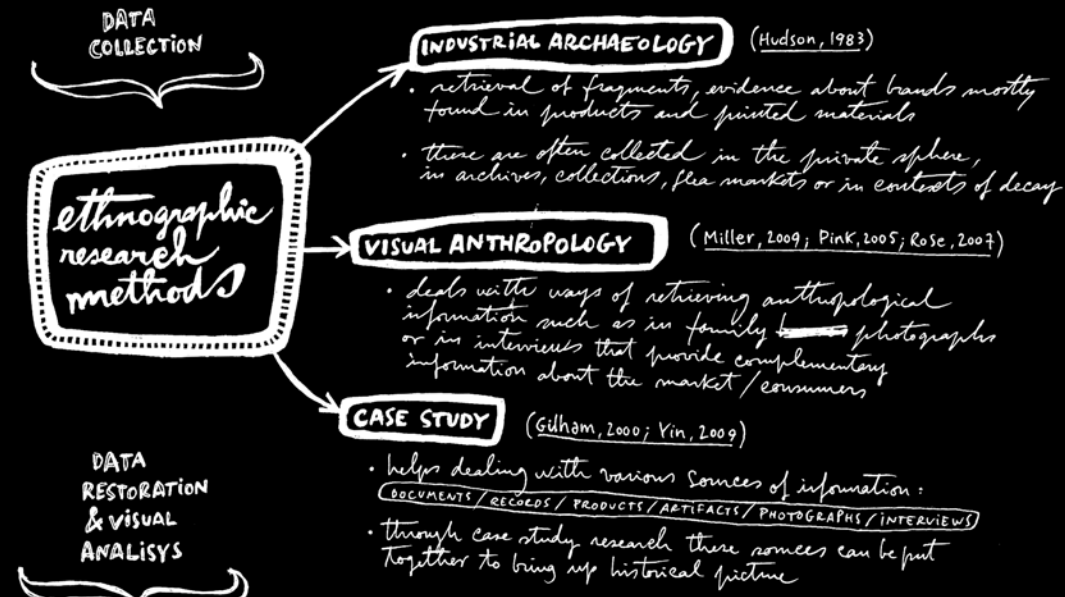 DATA
COLLECTION
ethnographic
research
methods
INDUSTRIAL ARCHAEOLOGY (Hudson, 1983)
• retrieval of fragments, evidence about brands mostly
found in products and printed materials
• these are often collected in the private sphere,
in archives, collections, flea markets or in contexts of decay
VISUAL ANTHROPOLOGY (Miller, 2009; Pink, 2005; Rose, 2007)
• deals with ways of retrieving anthropological
information such as in family photographs
or in interviews that provide complementary
information about the market / consumers
CASE STUDY (Gilham, 2000; Yin, 2009)
• helps dealing with various sources of information:
DOCUMENTS / RECORDS / PRODUCTS / ARTIFACTS / PHOTOGRAPHS / INTERVIEWS
• through case study research these sources can be put
together to bring up historical picture
DATA
RESTORATION
& VISUAL
ANALISYS